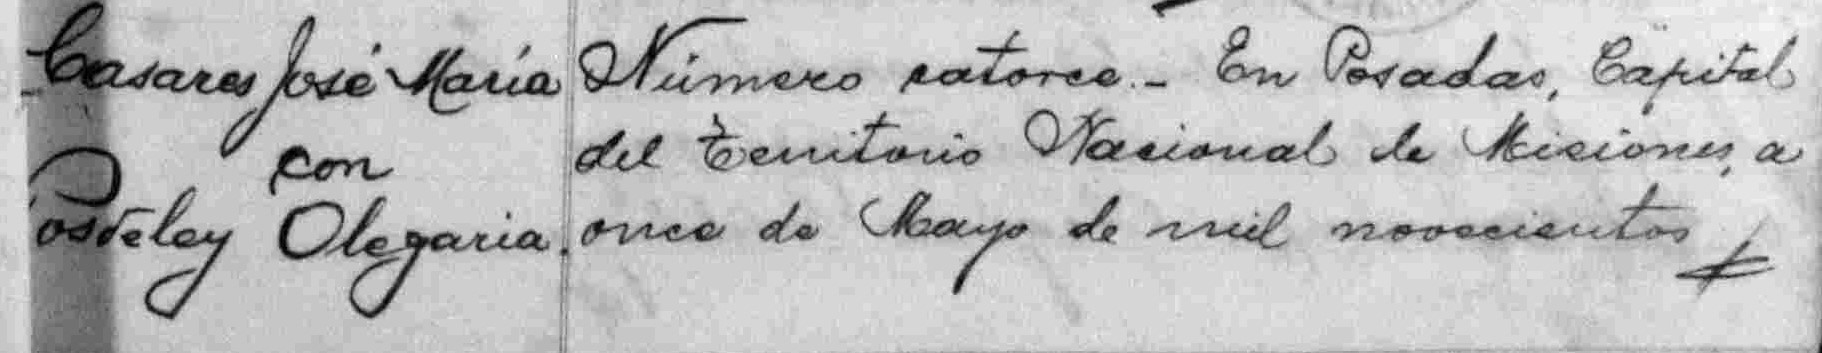 Casares José María
con
Posdeley Olegaria.
Número catorce.- En Posadas, Capital
del Territorio Nacional de Misiones, a
once de Mayo de mil novecientos